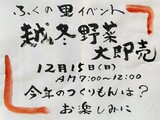 ふくの里イベント
越冬野菜
大即売
12月15日(日)
AM7:00~12:00
今年のつくりもんは?
お楽しみに